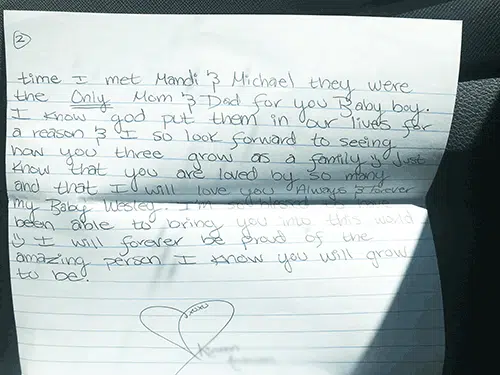 2
time I met Mandi & Michael they were
the Only Mom & Dad for you Baby boy.
I know god put them in our lives for
a reason & I so look forward to seeing
how you three grow as a family & Just
know that you are loved by so many
and that I will love you Always & forever
my Baby Wesley. I'm so blessed to have
been able to bring you into this world
& I will forever be proud of the
amazing person I know you will grow
to be.
xoxo